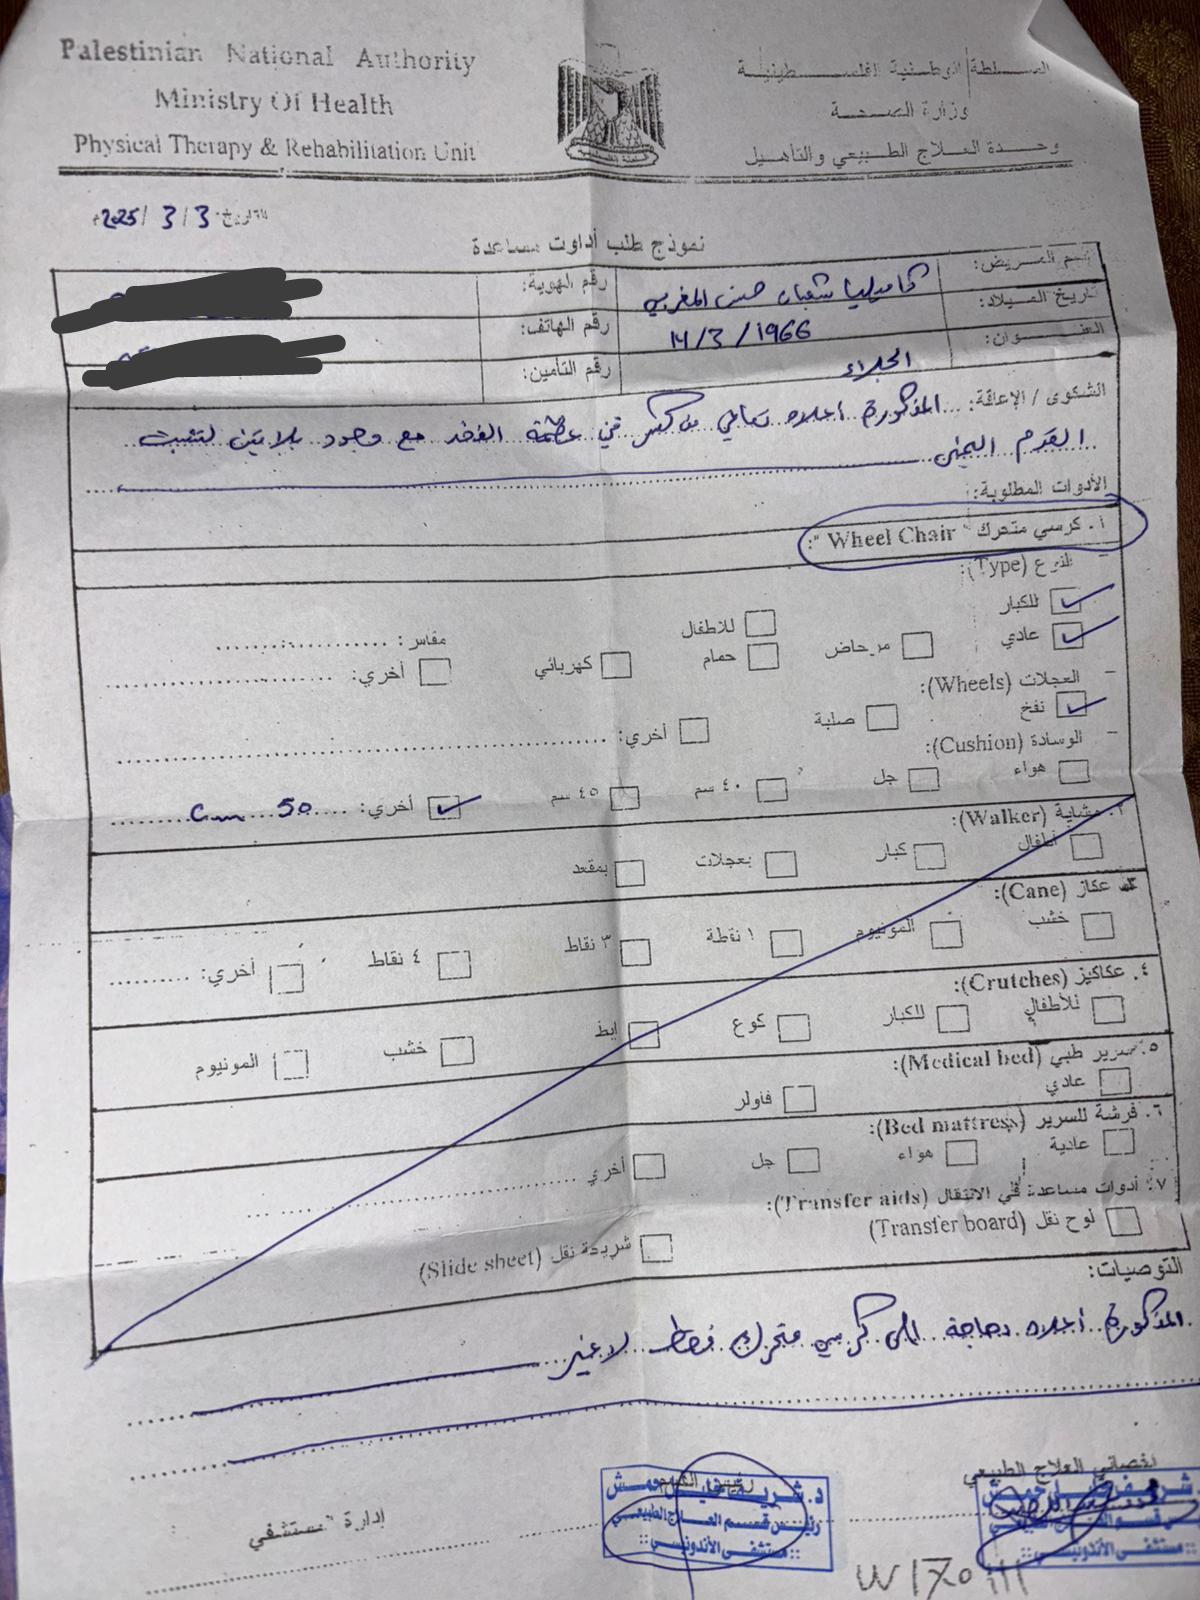 Palestinian National Authority
Ministry Of Health
Physical Therapy & Rehabilitation Unit
السلطة الوطنية الفلسطينية
وزارة الصحة
وحدة العلاج الطبيعي والتأهيل
التاريخ: 3 / 3 / 2025م
نموذج طلب أداوت مساعدة
إسم المريض: كاميليا شعبان حسن المغربي رقم الهوية:
تاريخ الميلاد: 14/3/1966 رقم الهاتف:
العنوان: الجلاء رقم التأمين:
الشكوى / الإعاقة: المذكورة أعلاه تعاني من كسر في عظمة الفخذ مع وجود بلاتين لتثبيت
القدم اليمنى
الأدوات المطلوبة:
١. كرسي متحرك "Wheel Chair":
- النوع (Type):
للكبار للاطفال مقاس:
عادي مرحاض حمام كهربائي أخري:
- العجلات (Wheels):
نفخ صلبة أخري:
- الوسادة (Cushion):
هواء جل ٤٠ سم ٤٥ سم أخري: 50 cm
٢. مشاية (Walker):
أطفال كبار بعجلات بمقعد
٣. عكاز (Cane):
خشب المونيوم ١ نقطة ٣ نقاط ٤ نقاط أخري:
٤. عكاكيز (Crutches):
للأطفال للكبار كوع ابط خشب المونيوم
٥. سرير طبي (Medical bed):
عادي فاولر
٦. فرشة للسرير (Bed mattress):
عادية هواء جل أخري
٧. أدوات مساعدة في الانتقال (Transfer aids):
لوح نقل (Transfer board) شريحة نقل (Slide sheet)
التوصيات:
المذكورة أعلاه بحاجة الى كرسي متحرك فقط لا غير
أخصائي العلاج الطبيعي رئيس القسم ادارة المستشفى
رئيس قسم العلاج الطبيعي
::مستشفى الأندونيسي::
::مستشفى الأندونيسي::